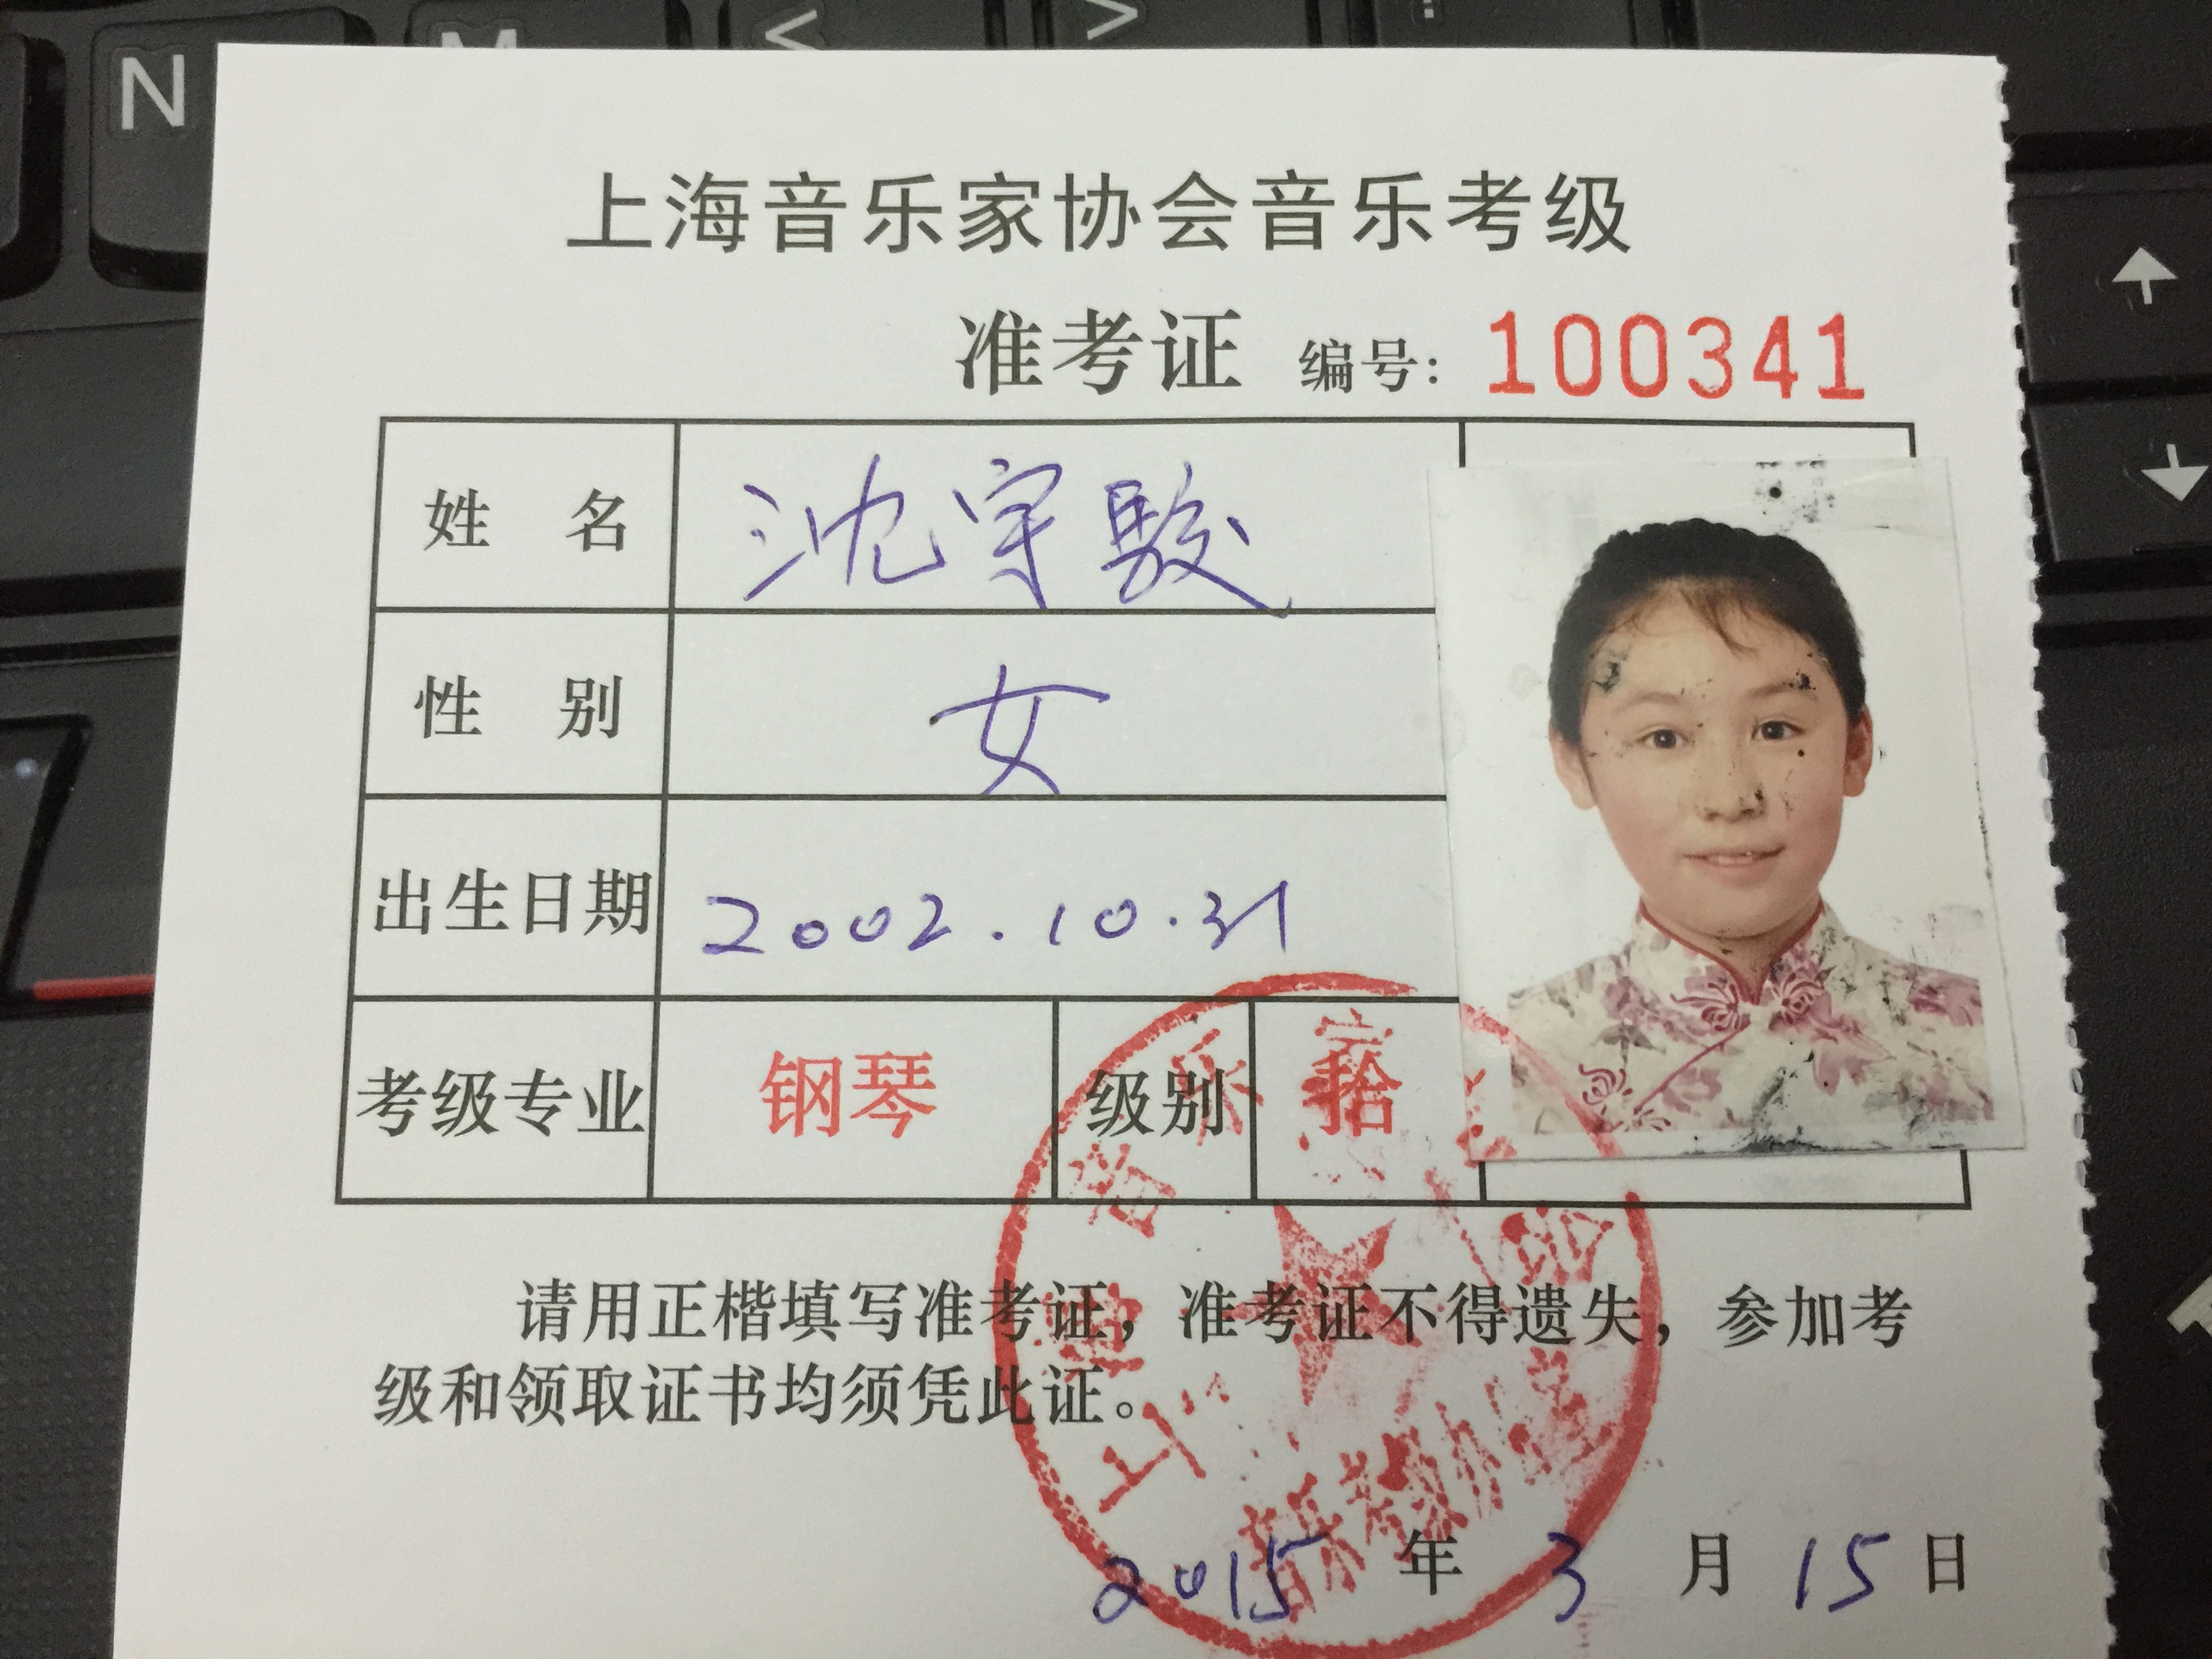 上海音乐家协会音乐考级
准考证 编号：100341
姓 名 沈
性 别 女
出生日期 2002.10.31
考级专业 钢琴 级别 拾
请用正楷填写准考证，准考证不得遗失，参加考
级和领取证书均须凭此证。
2015 年 3 月 15 日
N
M
<
>